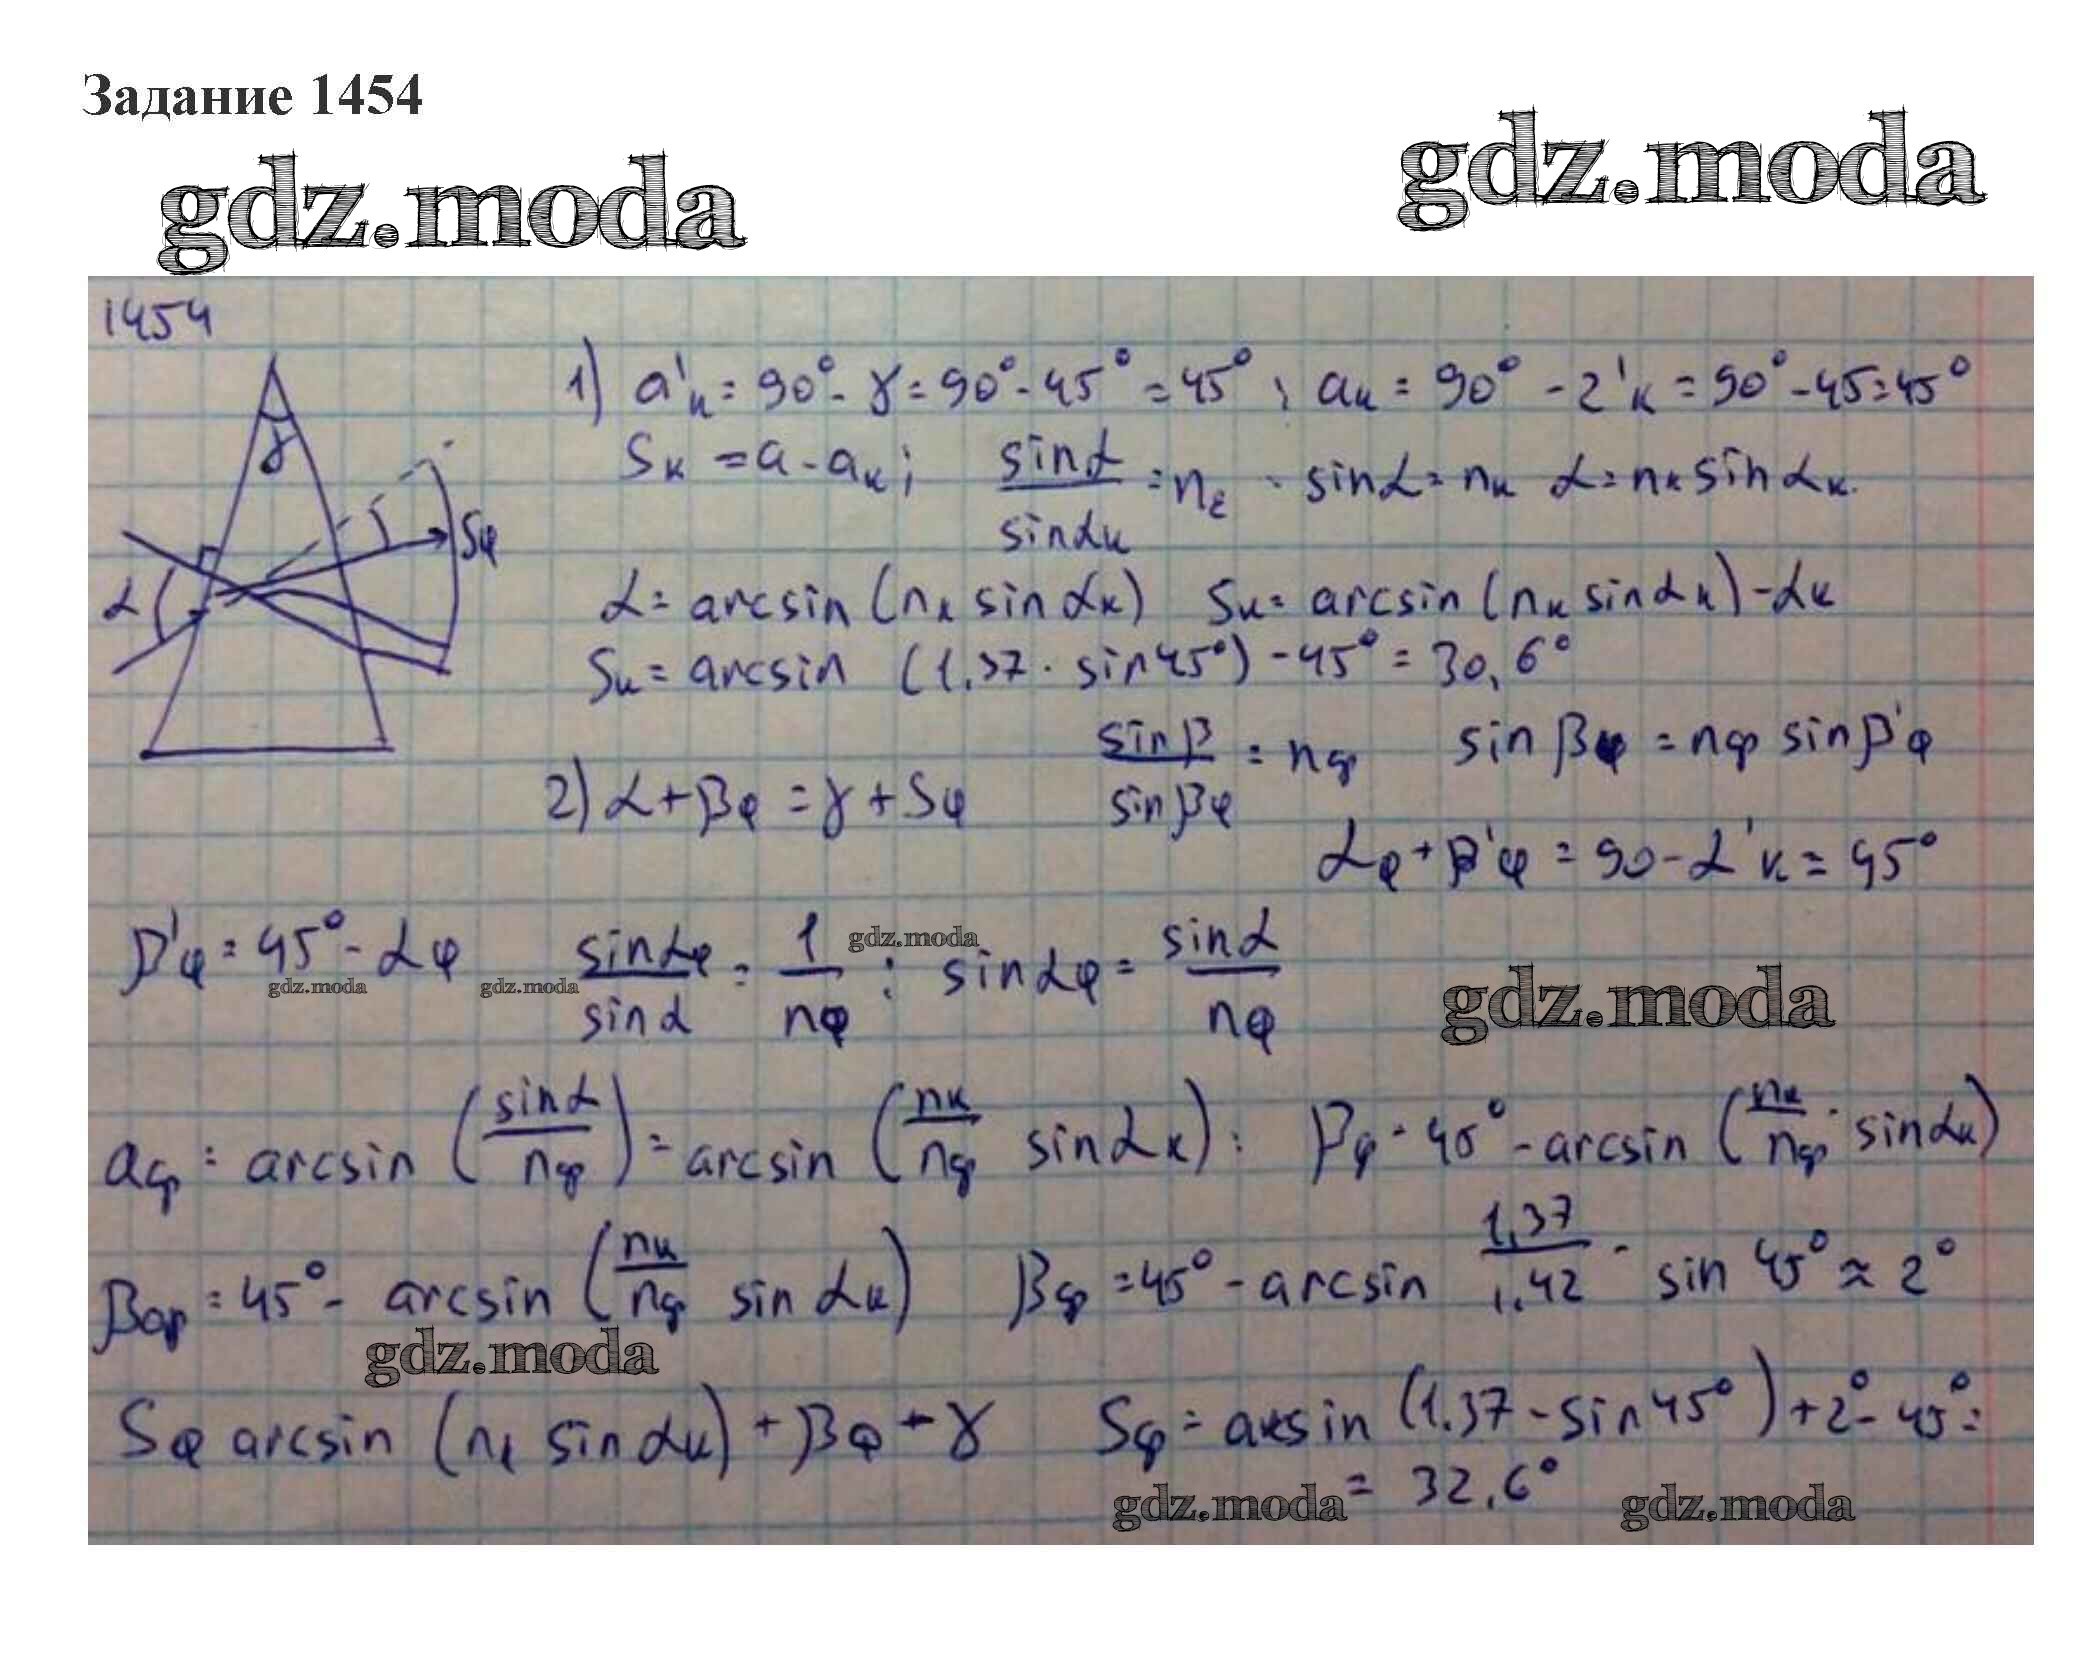 Задание 1454
gdz.moda
gdz.moda
1454
γ
α
Sφ
1) a'к = 90° - γ = 90° - 45° = 45° ; aк = 90° - 2'к = 90° - 45 = 45°
Sк = a - aк ; sinα / sinαк = nε · sinα = nк α = nк sin αк.
α = arcsin (nк sin αк) Sк = arcsin (nк sin αк) - αк
Sк = arcsin (1,37 · sin 45°) - 45° = 30,6°
sin β / sin βφ = nφ sin βφ = nφ sin β'φ
2) α + βφ = γ + Sφ
αφ + β'φ = 90 - α'к = 45°
β'φ = 45° - αφ sin αφ / sin α = 1 / nφ ; sin αφ = sin α / nφ
gdz.moda
gdz.moda
gdz.moda
gdz.moda
aφ = arcsin (sin α / nφ) = arcsin (nк / nφ sin αк) : βφ = 45° - arcsin (nк / nφ · sin αк)
βφ = 45° - arcsin (nк / nφ sin αк) βφ = 45° - arcsin 1,37 / 1,42 · sin 45° ≈ 2°
gdz.moda
Sφ arcsin (nк sin αк) + βφ - γ Sφ = arcsin (1.37 - sin 45°) + 2° - 45° =
= 32,6°
gdz.moda
gdz.moda